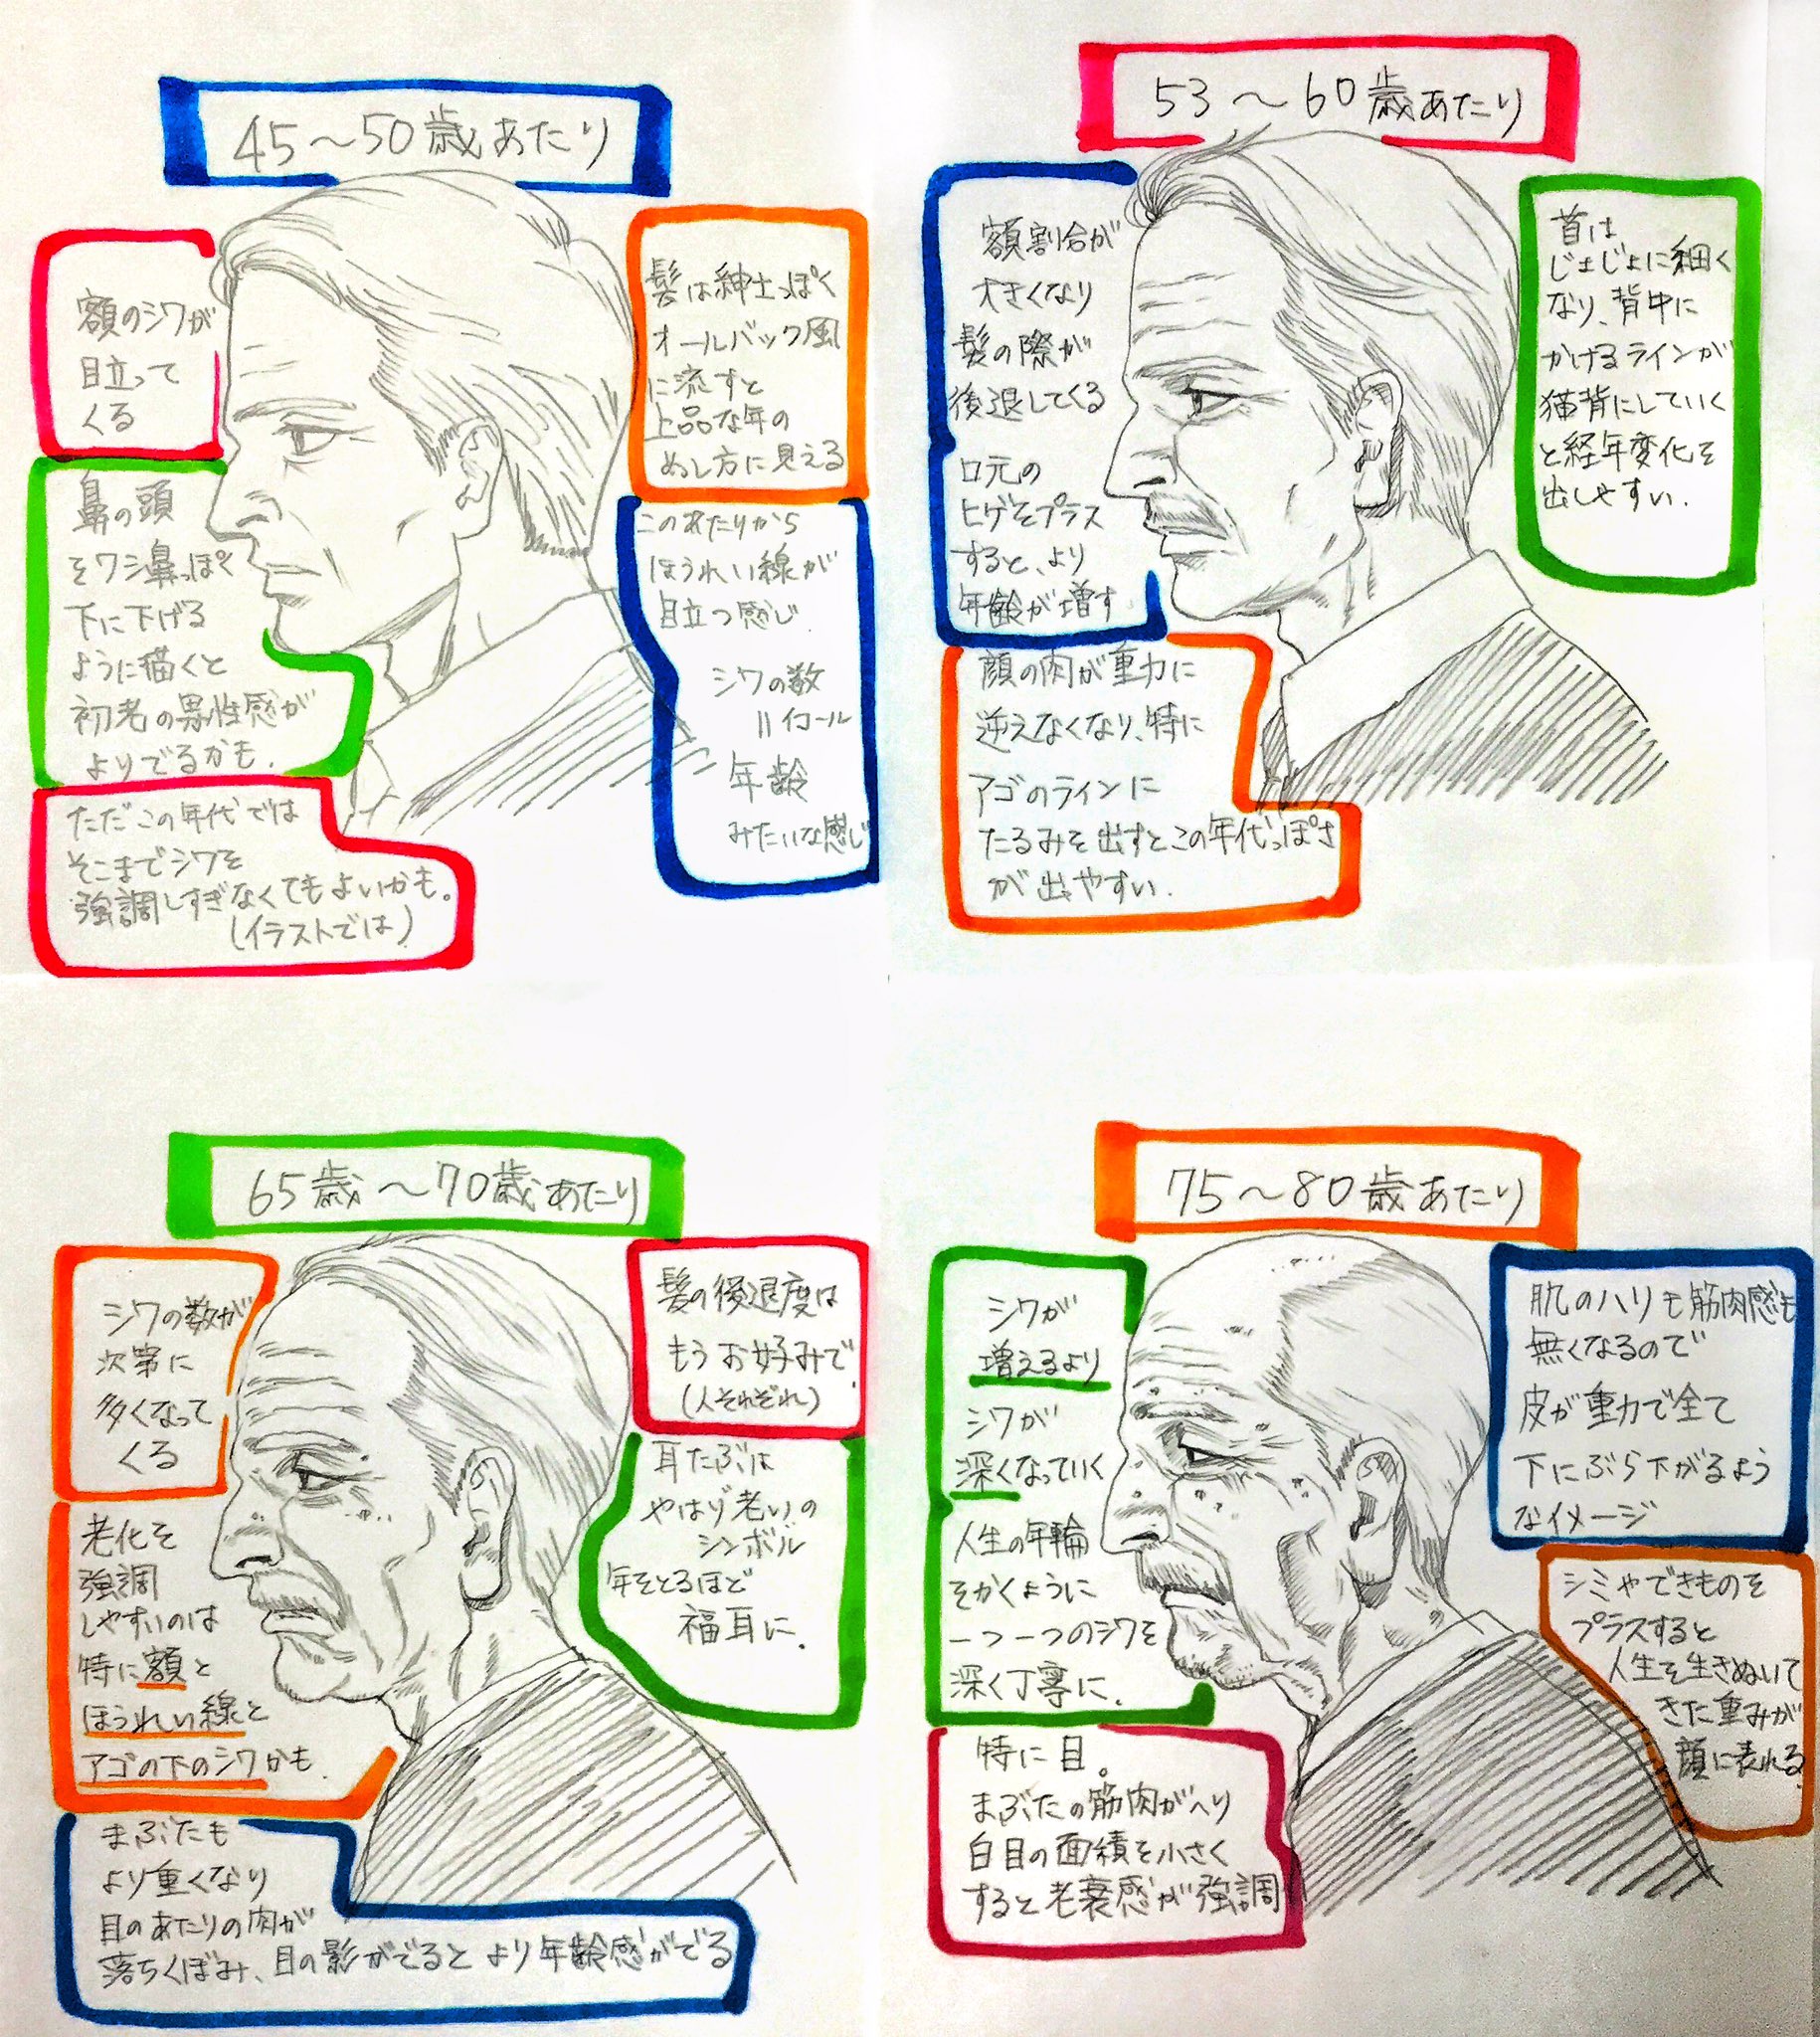 45〜50歳あたり
額のシワが
目立って
くる
鼻の頭
をワシ鼻っぽく
下に下げる
ように描くと
初老の男性感が
よりでるかも.
ただこの年代では
そこまでシワを
強調しすぎなくてもよいかも。
(イラストでは)
髪は紳士っぽく
オールバック風
に流すと
上品な年の
めし方に見える
このあたりから
ほうれい線が
目立つ感じ.
シワの数
||イコール
年齢
みたいな感じ
53〜60歳あたり
額割合が
大きくなり
髪の際が
後退してくる
口元の
ヒゲをプラス
すると、より
年齢が増す
顔の肉が重力に
逆えなくなり、特に
アゴのラインに
たるみを出すとこの年代っぽさ
が出やすい.
首は
じょじょに細く
なり、背中に
かけるラインが
猫背にしていく
と経年変化を
出しやすい.
65歳〜70歳あたり
シワの数が
次第に
多くなって
くる
老化を
強調
しやすいのは
特に額と
ほうれい線と
アゴの下のシワかも.
まぶたも
より重くなり
目のあたりの肉が
落ちくぼみ、目の影がでるとより年齢感がでる
髪の後退度は
もうお好みで.
(人それぞれ)
耳たぶは
やはり老いの
シンボル
年をとるほど
福耳に.
75〜80歳あたり
シワが
増えるより
シワが
深くなっていく
人生の年輪
をかくように
一つ一つのシワを
深く丁寧に.
特に目。
まぶたの筋肉がへり
白目の面積を小さく
すると老衰感が強調
肌のハリも筋肉感も
無くなるので
皮が重力で全て
下にぶら下がるよう
なイメージ
シミやできものを
プラスすると
人生を生きぬいて
きた重みが
顔に表れる.